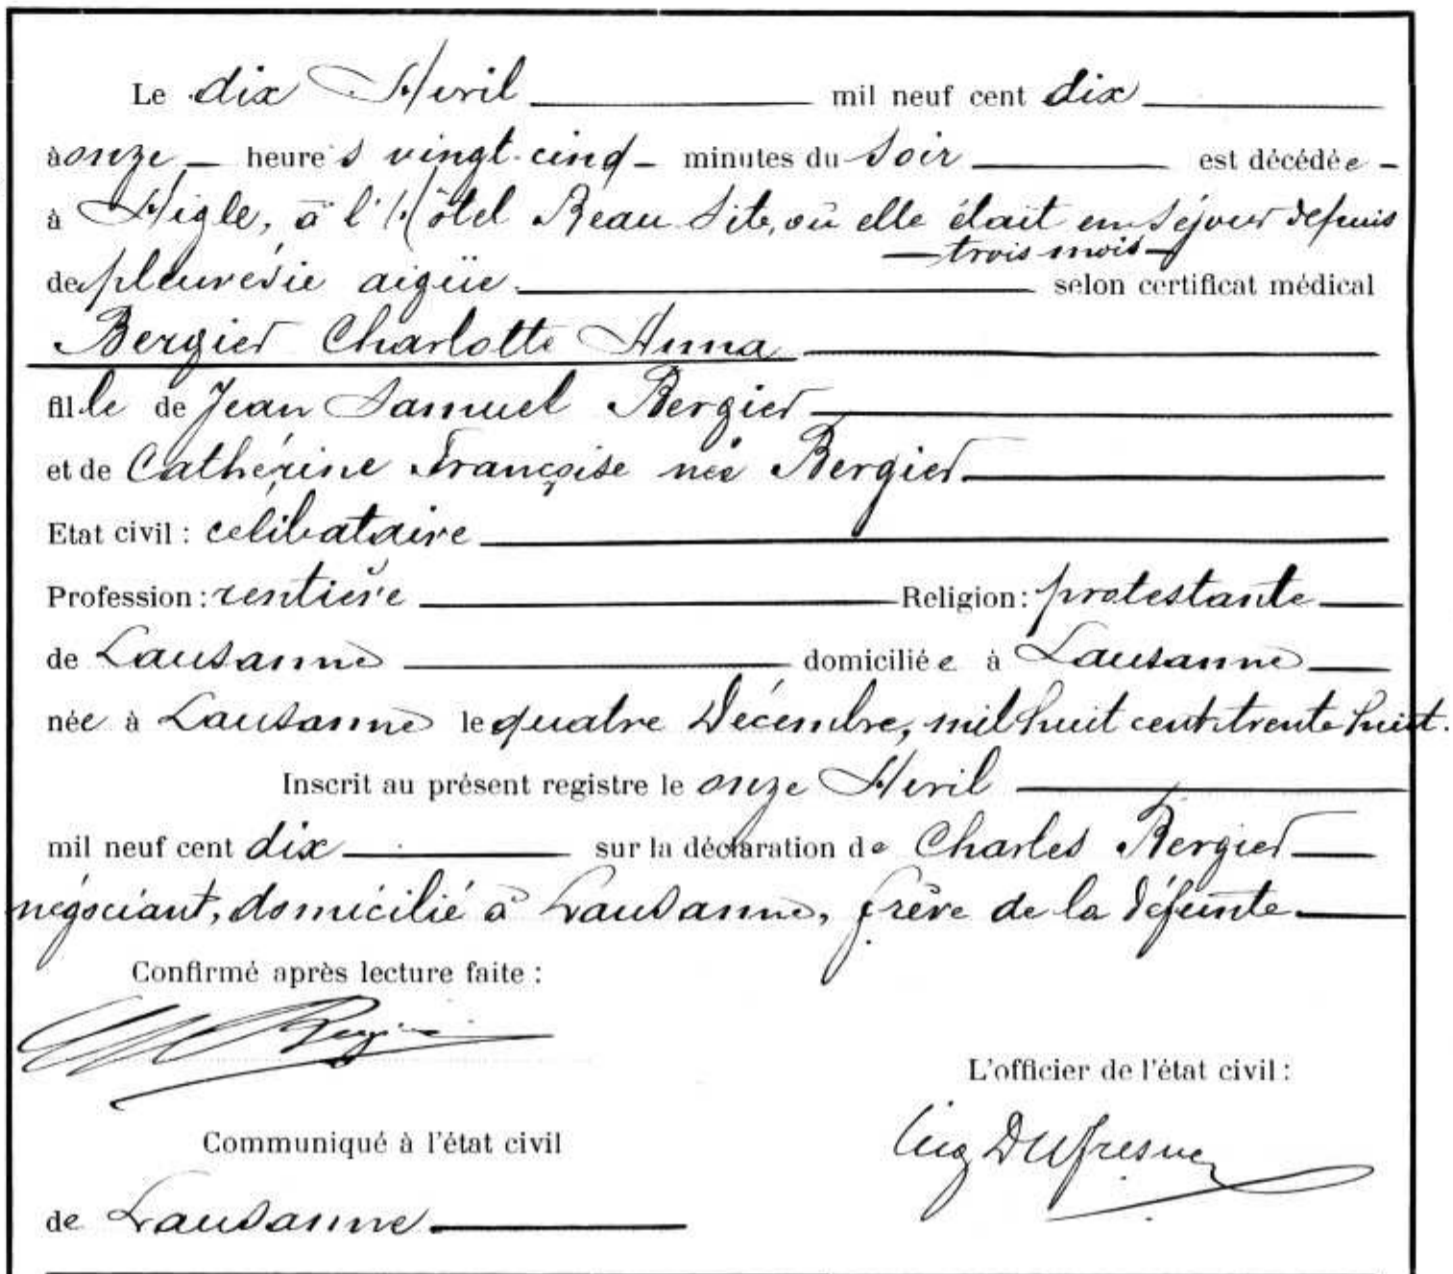 Le dix Avril mil neuf cent dix
à onze heures vingt-cinq minutes du soir est décédée
à Aigle, à l'Hôtel Beau Site, où elle était en séjour depuis
trois mois
de pleurésie aigüe selon certificat médical
Bergier Charlotte Anna
fille de Jean Samuel Bergier
et de Cathérine Françoise née Bergier
Etat civil : célibataire
Profession : rentière Religion : protestante
de Lausanne domiciliée à Lausanne
née à Lausanne le quatre Décembre, mil huit cent trente huit.
Inscrit au présent registre le onze Avril
mil neuf cent dix sur la déclaration de Charles Bergier
négociant, domicilié à Lausanne, frère de la défunte
Confirmé après lecture faite :
Bergier
L'officier de l'état civil :
Dufresne
Communiqué à l'état civil
de Lausanne